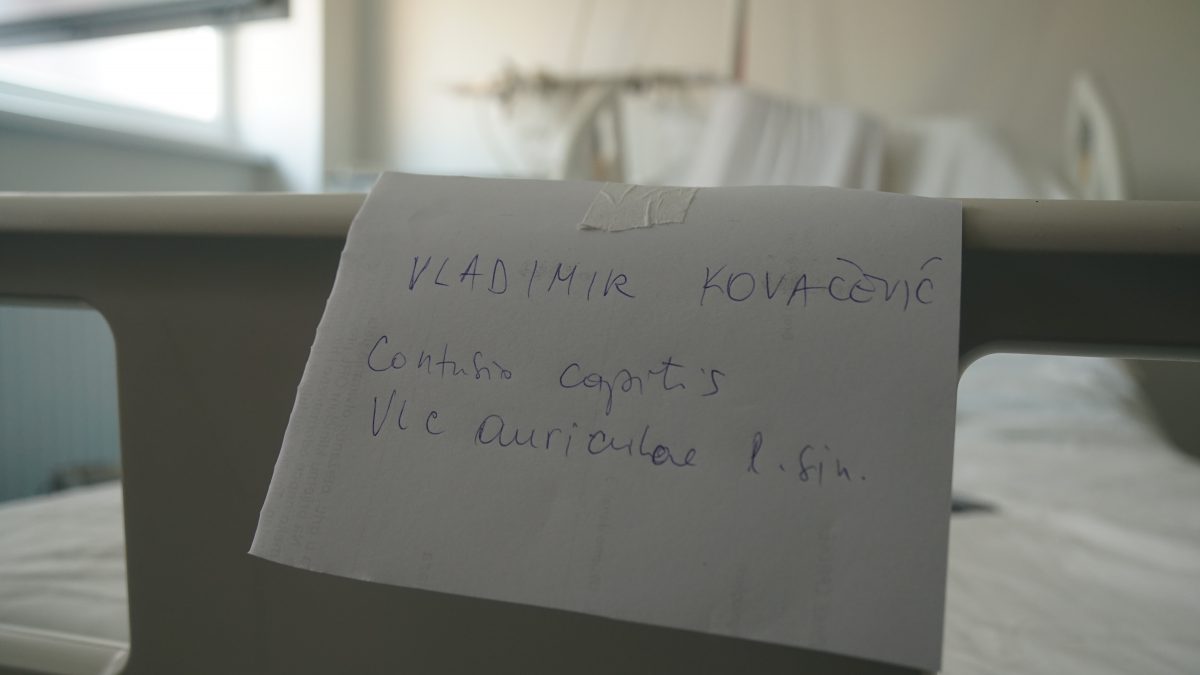 VLADIMIR KOVAČEVIĆ
Contusio capitis
Vlc auriculae l. sin.